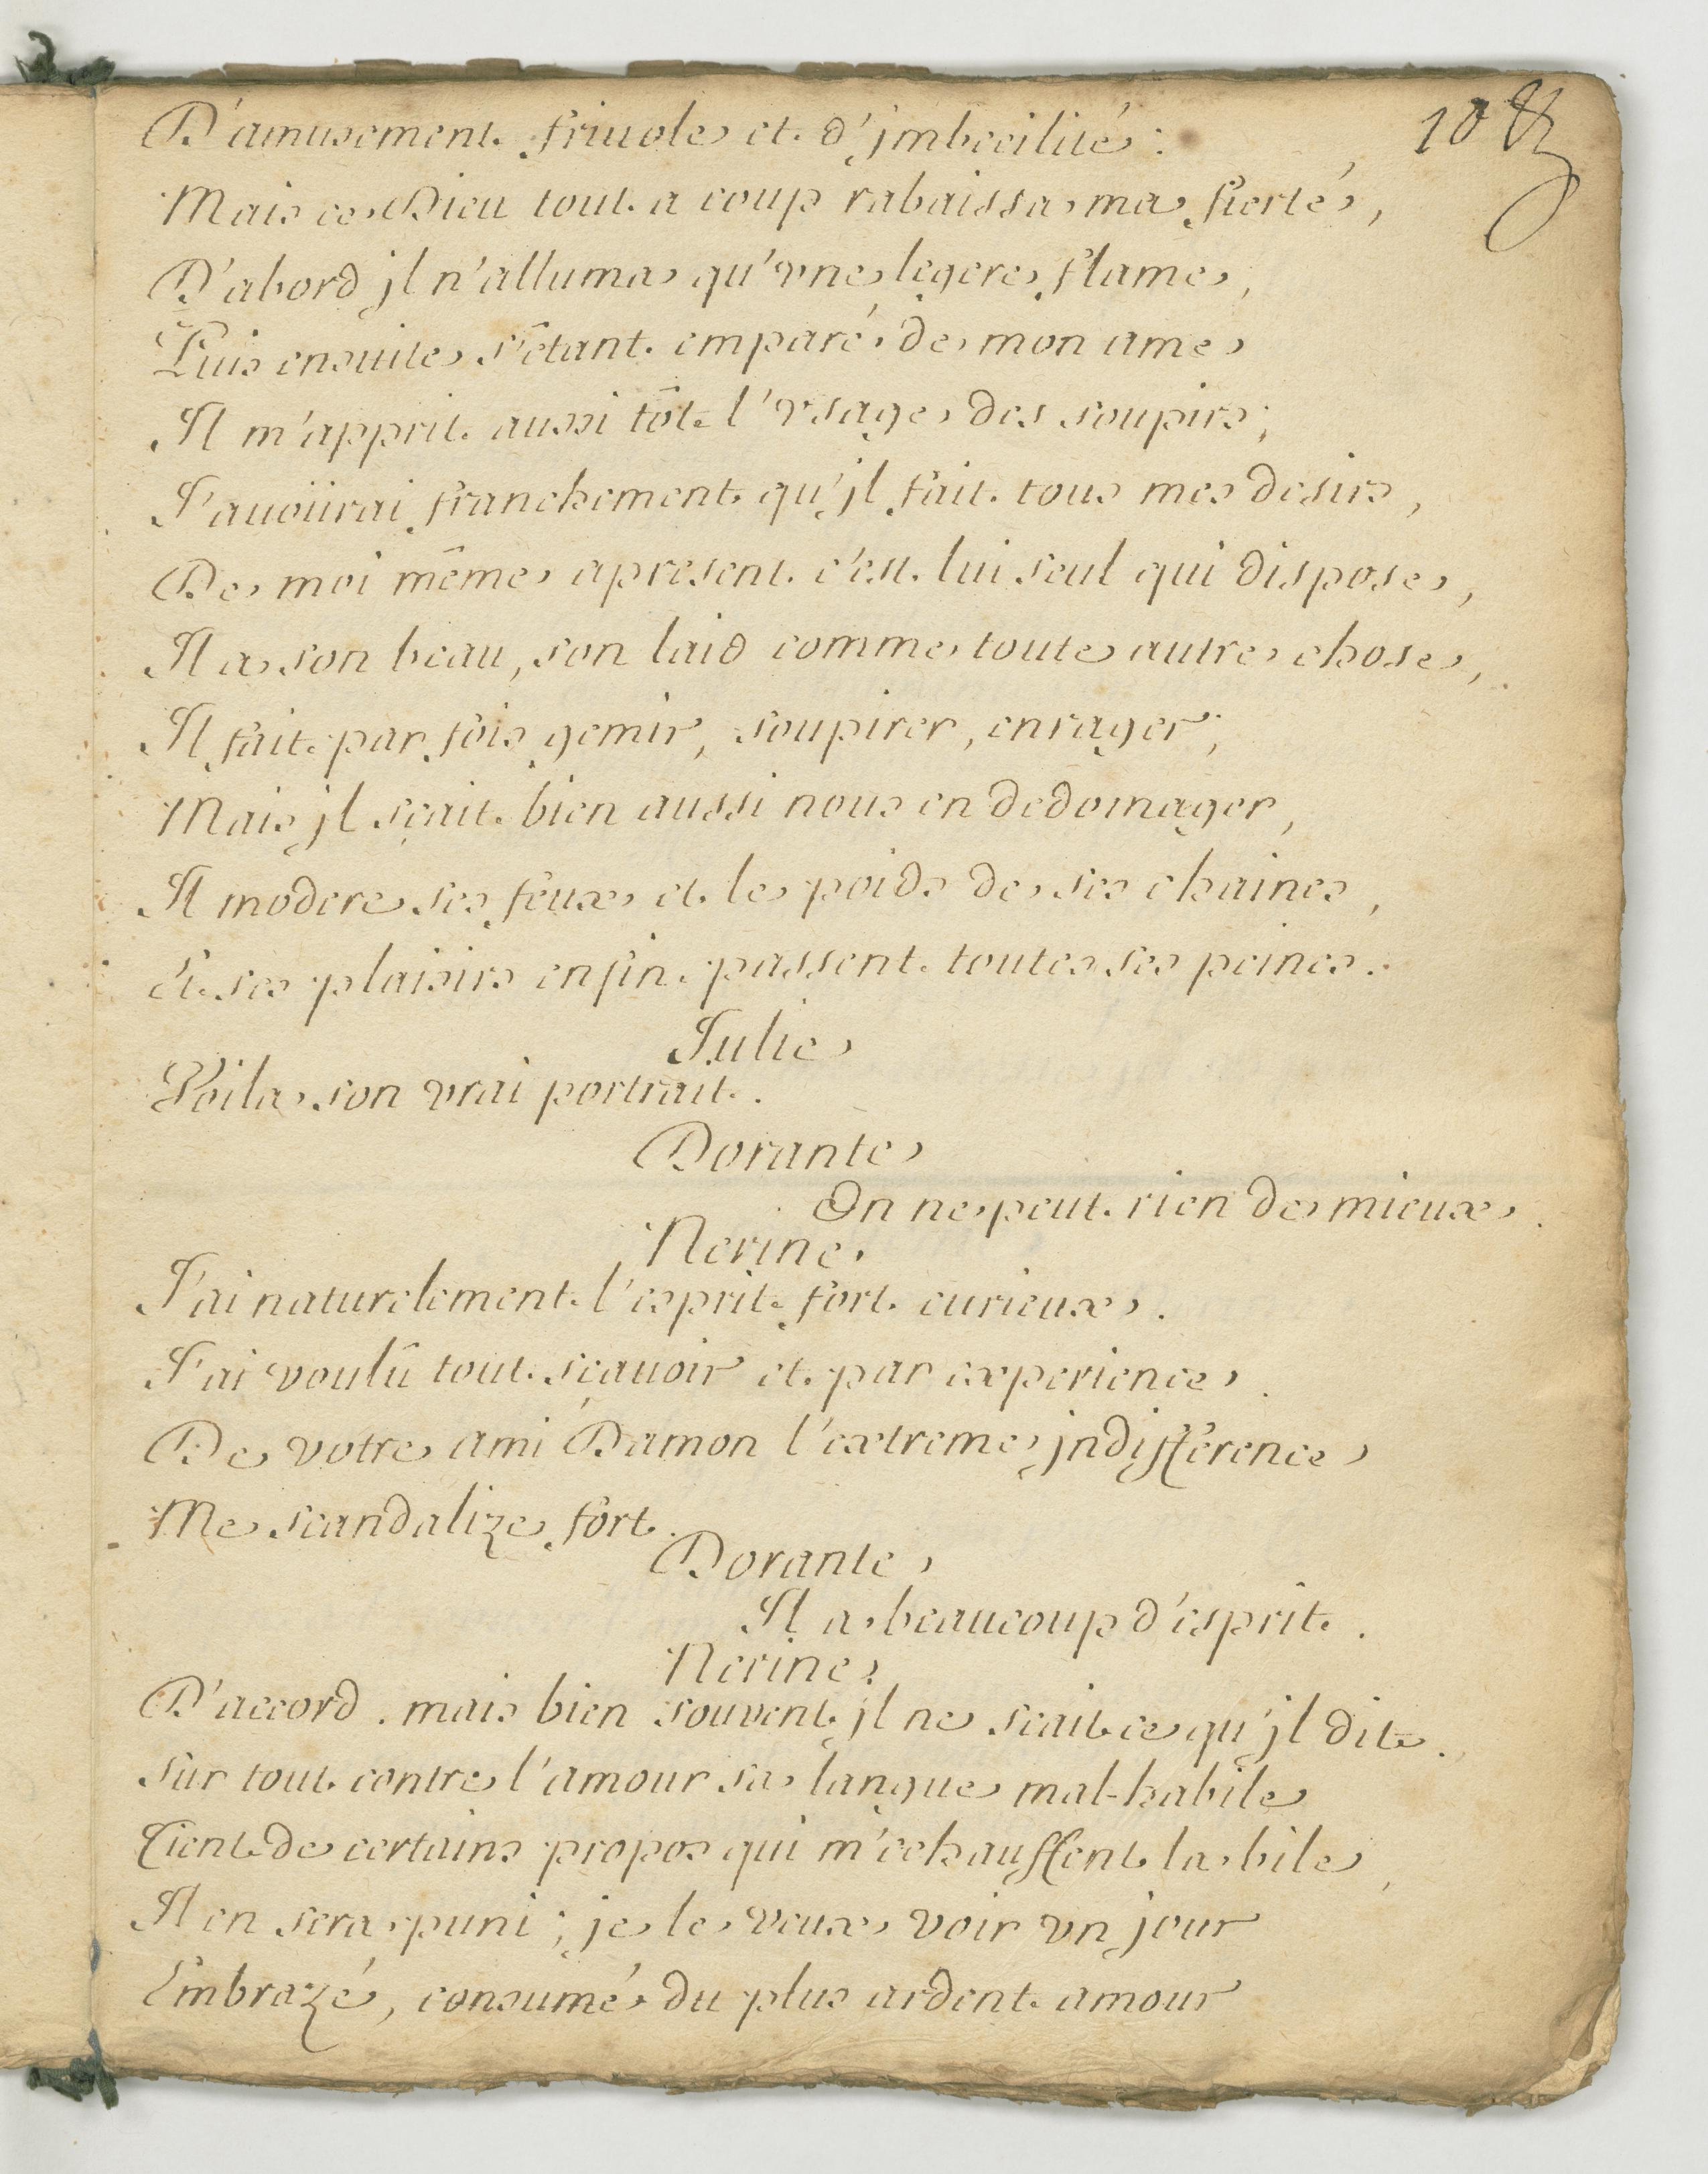 10
D'amusement friuole et d'jmbecilité :
Mais ce Dieu tout a coup rabaissa ma fierté,
D'abord jl n'alluma qu'vne legere flame,
Puis ensuite s'étant emparé de mon ame
Il m'apprit aussi tôt l'vsage des soupirs;
J'auoüirai franchement qu'jl fait tous mes desirs,
De moi même apresent c'est lui seul qui dispose,
Il a son beau, son laid comme toute autre chose,
Il fait par fois gemir, soupirer, enrager;
Mais jl sçait bien aussi nous en dedomager,
Il modere ses feux et le poids de ses chaines,
Et ses plaisirs enfin passent toutes ses peines.
Julie
Voila son vrai portrait.
Dorante
On ne peut rien de mieux.
Nerine
J'ai naturelement l'esprit fort curieux.
J'ai voulû tout sçauoir et par experience.
De votre ami Damon l'extreme jndifference
Me scandalize fort.
Dorante
Il a beaucoup d'esprit.
Nerine
D'accord. mais bien souvent jl ne scait ce qu'jl dit.
Sur tout contre l'amour sa langue mal-habile
Tient de certains propos qui m'echauffent la bile,
Il en sera puni; je le veux voir vn jour
Embrazé, consumé du plus ardent amour